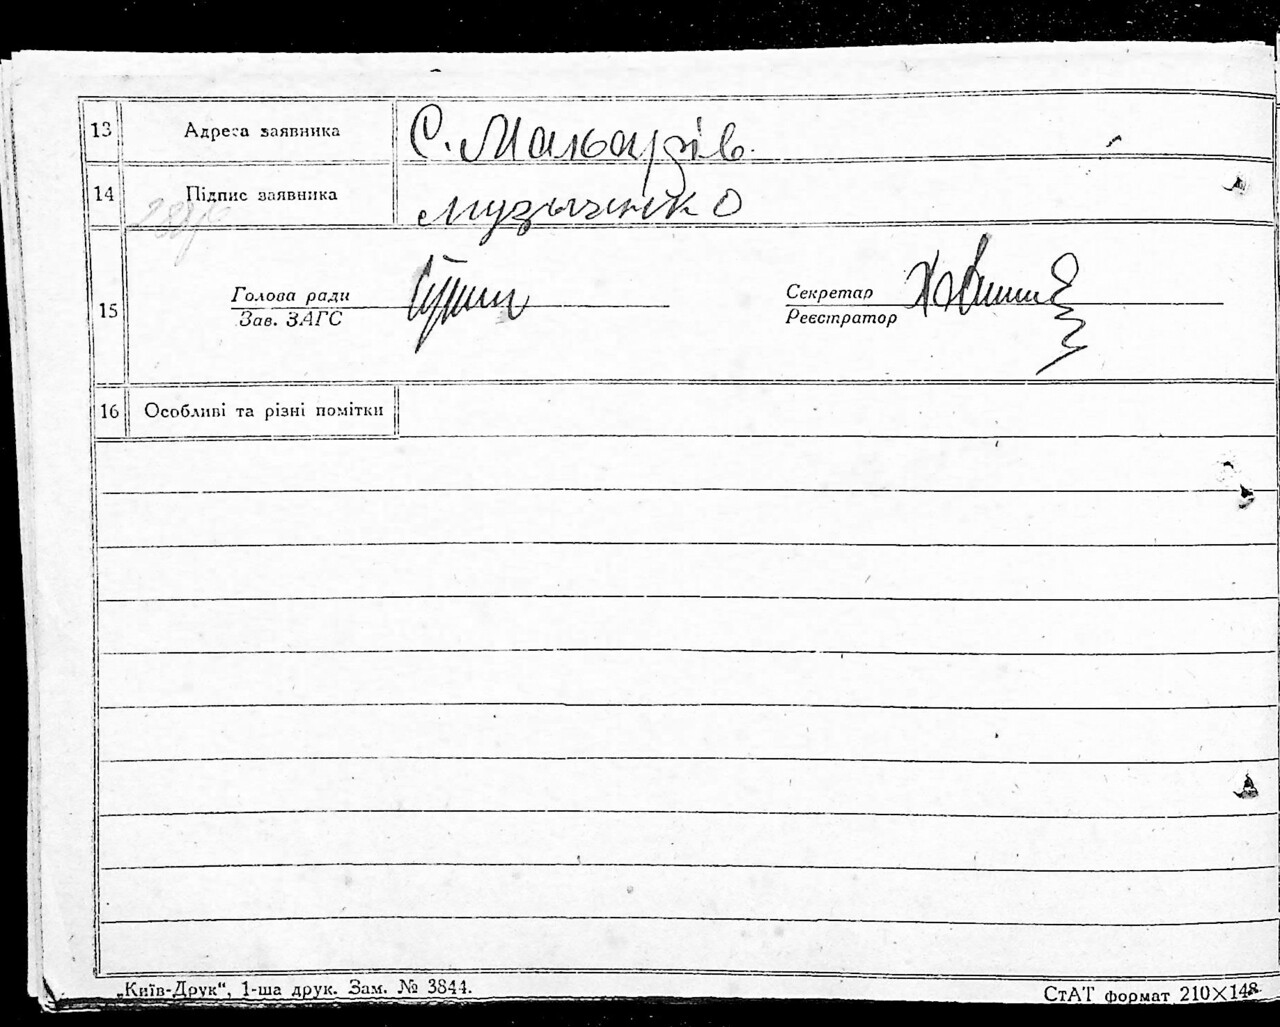 13 Адреса заявника С. Мальарів.
14 Підпис заявника Музыченко
15 Голова ради Секретар
Зав. ЗАГС Реєстратор
16 Особливі та різні помітки
„Київ-Друк“, 1-ша друк. Зам. № 3844.
СтАТ формат 210×148